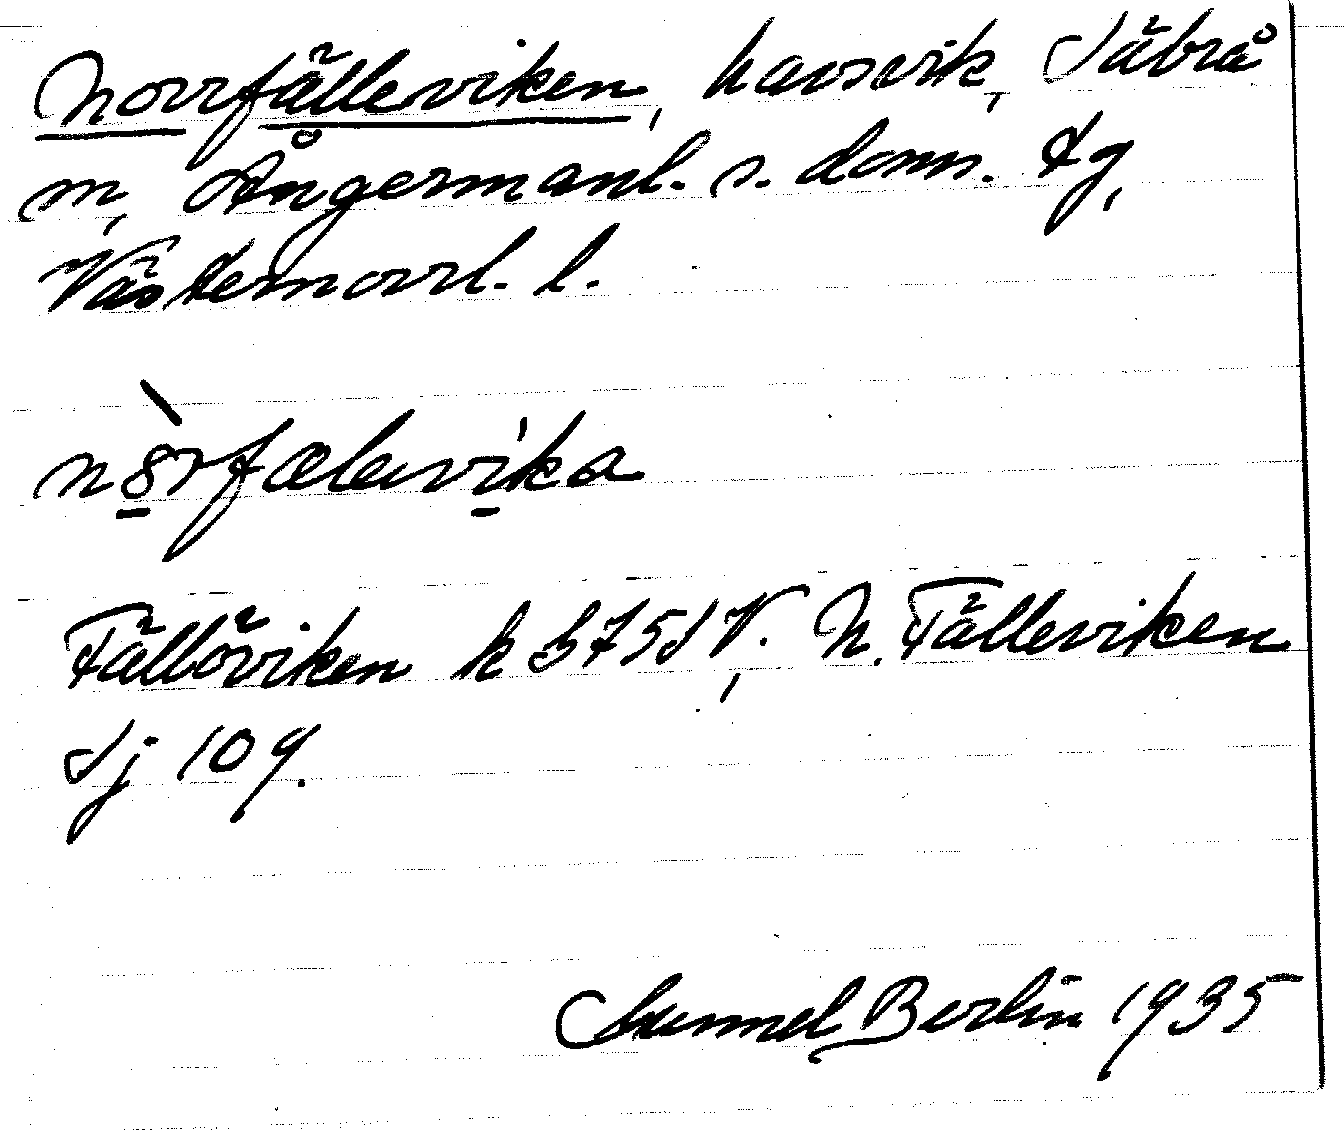 Norrfälleviken, havsvik, Säbrå
sn, Ångermanl. s. doms. tg,
Västernorrl. l.
nòrfælevika
Fällöviken k 375 SV, N. Fälleviken
Sj 109.
Gunnel Berlin 1935